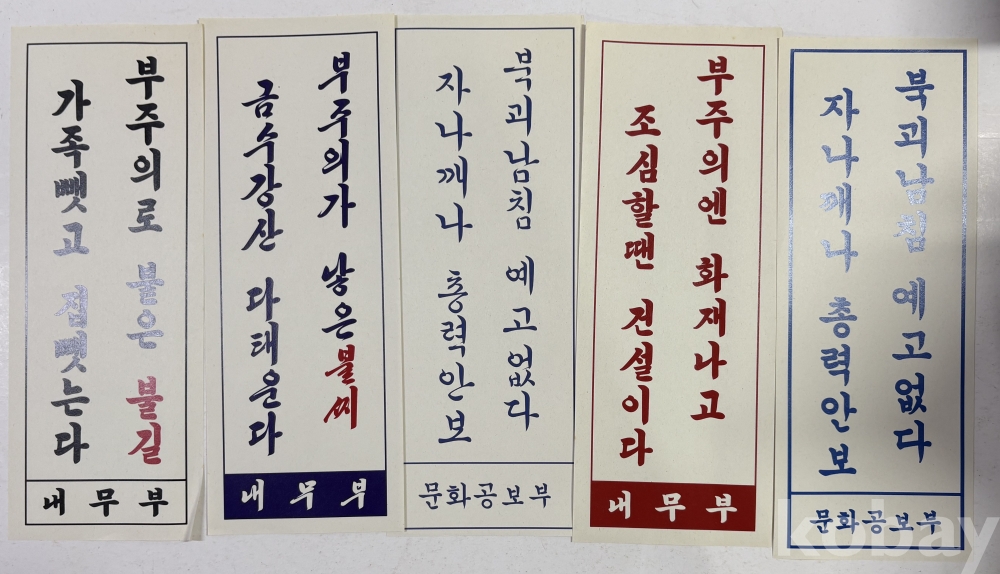 부주의로 붙은 불길
가족뺏고 집뺏는다
내무부
부주의가 낳은불씨
금수강산 다태운다
내무부
북괴남침 예고없다
자나깨나 총력안보
문화공보부
부주의엔 화재나고
조심할땐 건설이다
내무부
북괴남침 예고없다
자나깨나 총력안보
문화공보부
kobay